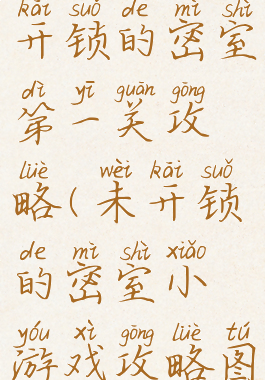 kāi suǒ de mì shì
开锁的密室
dì yī guān gōng
第一关攻
lüè wèi kāi suǒ
略(未开锁
de mì shì xiǎo
的密室小
yóu xì gōng lüè tú
游戏攻略图